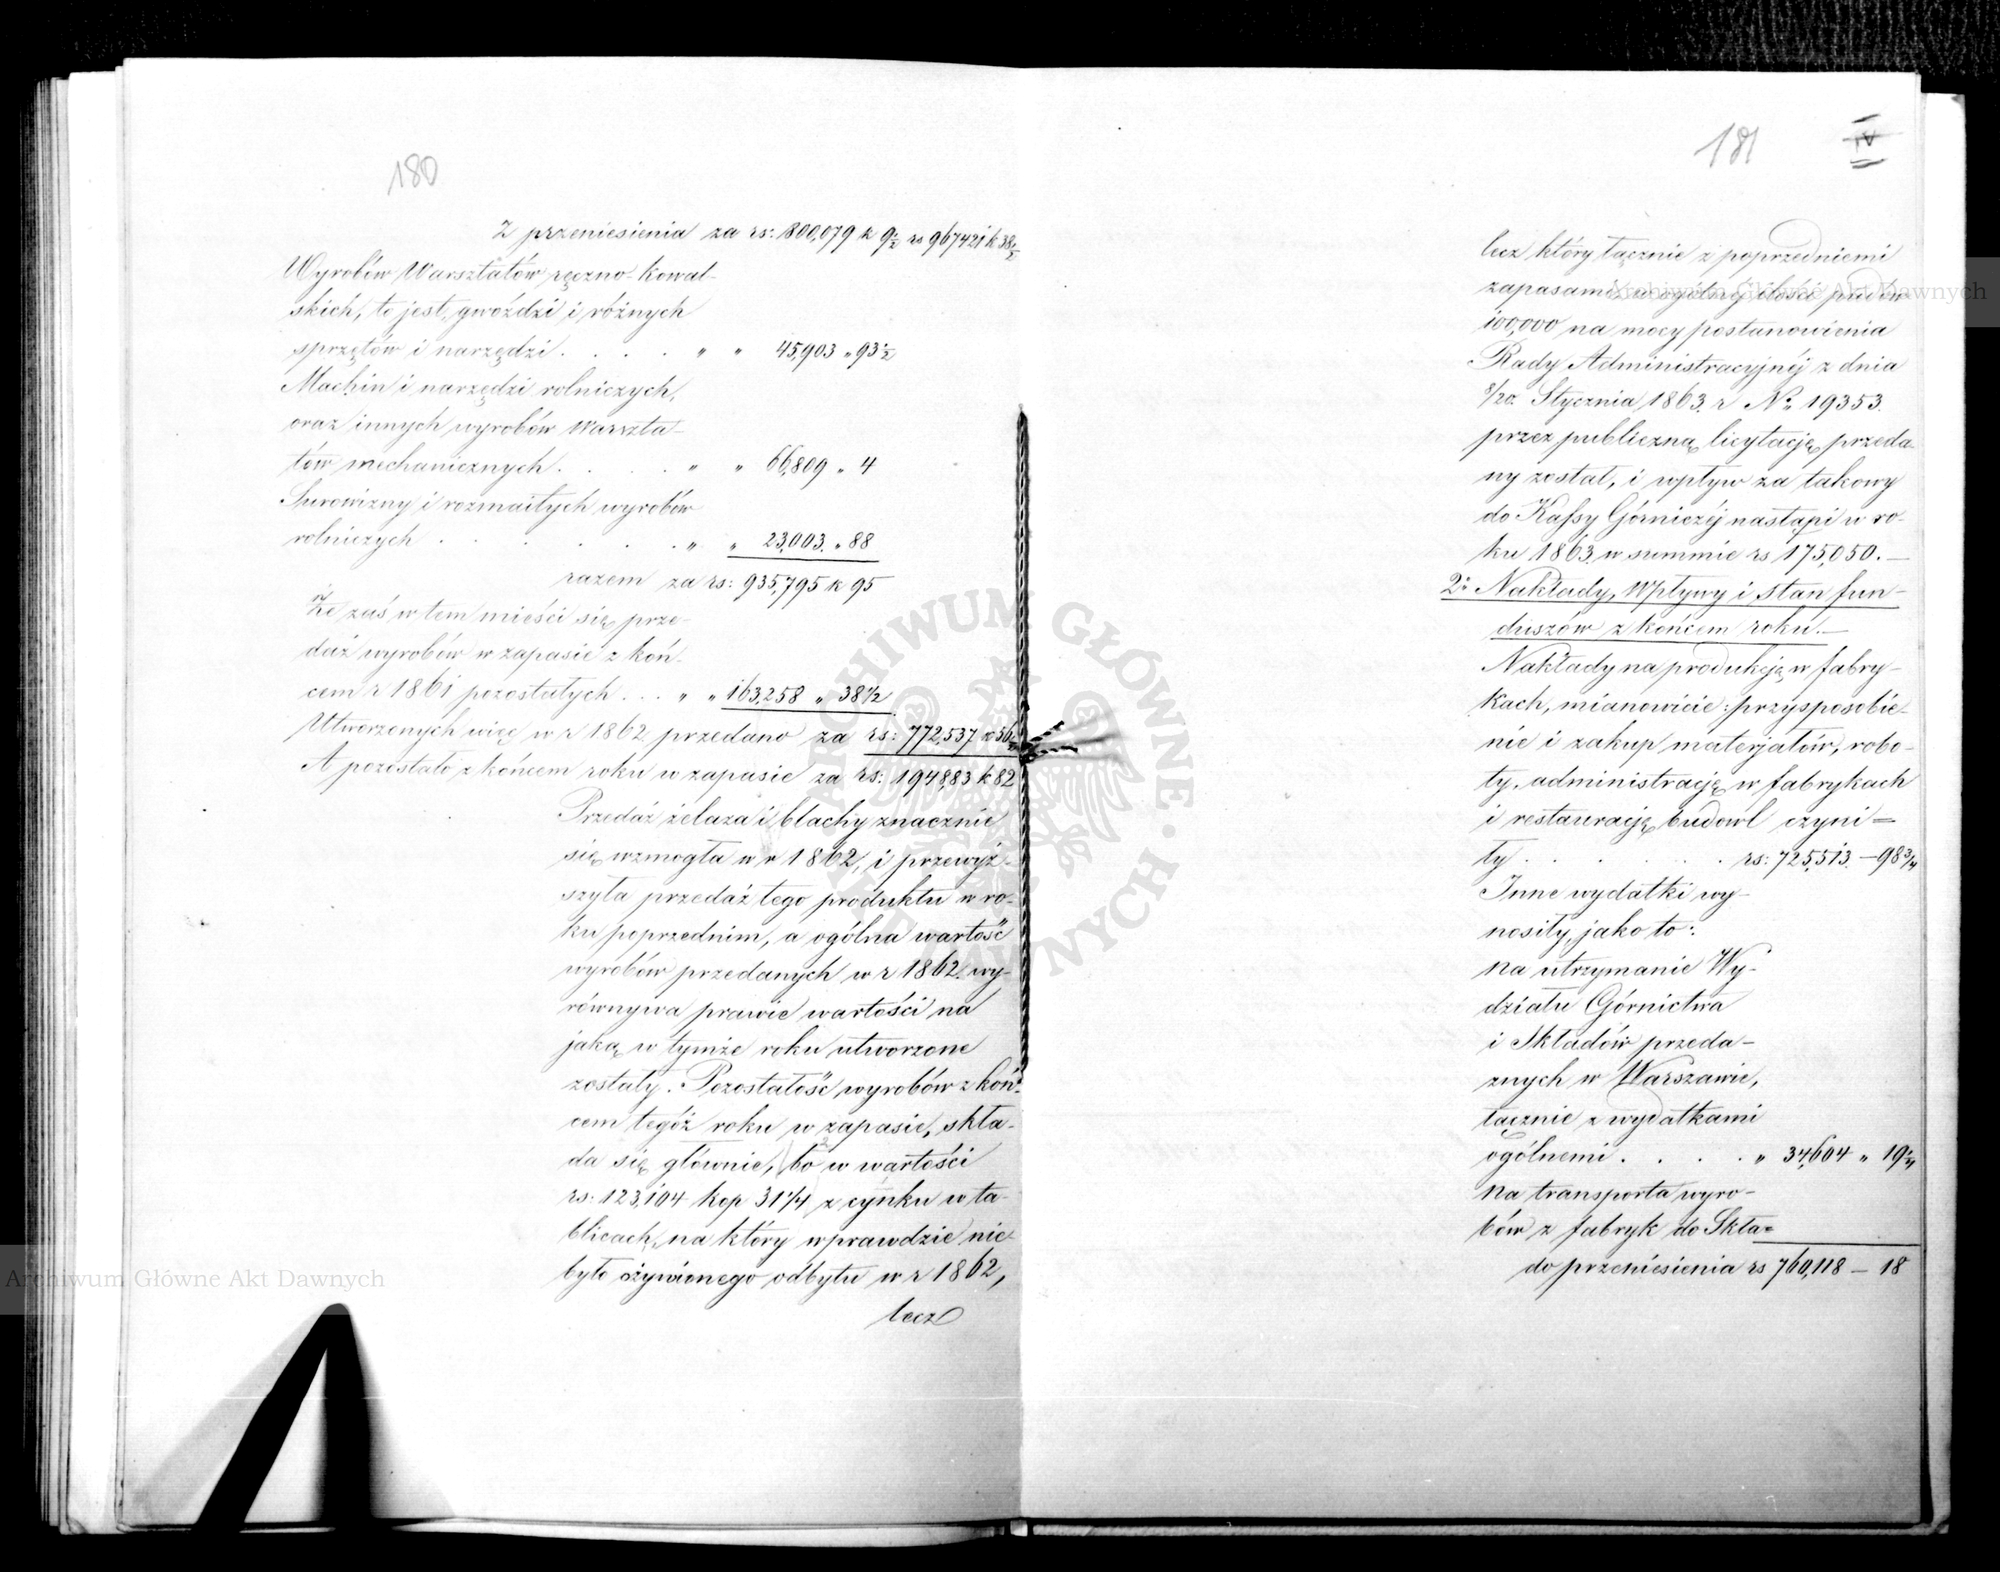 180
Z przeniesienia za rs: 800,079 k 9½ rs 967421 k 38½
Wyrobów Warsztatów ręczno-kowal-
skich, to jest, gwoździ i różnych
sprzętów i narzędzi . . . . " " 45,903 " 93½
Machin i narzędzi rolniczych,
oraz innych wyrobów Warszta-
tów mechanicznych . . . . " " 66,809 " 4
Surowizny i rozmaitych wyrobów
rolniczych . . . . . . " " 23,003. " 88
razem za rs: 935,795 k 95
Że zaś w tem mieści się prze-
daż wyrobów w zapasie z koń-
cem r 1861 pozostałych . . . " " 163,258 " 38½
Utworzonych więc w r 1862 przedano za rs: 772,537 k 56½
A pozostało z końcem roku w zapasie za rs: 194,883 k 82
Przedaż żelaza i blachy znacznie
się wzmogła w r 1862, i przewyż-
szyła przedaż tego produktu w ro-
ku poprzednim, a ogólna wartość
wyrobów przedanych w r 1862. wy-
równywa prawie wartości na
jaką w tymże roku utworzone
zostały. Pozostałość wyrobów z koń-
cem tegóż roku w zapasie, skła-
da się głównie, bo w wartości
rs: 123,104 kop 31¼ z cynku w ta-
blicach, na który wprawdzie nie
było ożywionego odbytu w r 1862,
lecz
181
lecz który łącznie z poprzedniemi
zapasami w ogólnéj ilości pudów
100,000 na mocy postanowienia
Rady Administracyjnéj z dnia
8/20 Stycznia 1863 r No 19353.
przez publiczną licytację przeda-
ny został, i wpływ za takowy
do Kassy Górniczéj nastąpi w ro-
ku 1863 w summie rs 175,050. —
2o Nakłady, Wpływy i stan fun-
duszów z końcem roku. —
Nakłady na produkcję w fabry-
kach, mianowicie: przysposobie-
nie i zakup materjałów, robo-
ty, administrację w fabrykach
i restaurację budowl czyni-
ły . . . . . . . rs: 725,513. — 98¾
Inne wydatki wy-
nosiły, jako to:
na utrzymanie Wy-
działu Górnictwa
i Składów przeda-
znych w Warszawie,
łącznie z wydatkami
ogólnemi . . . . " 34,604 " 19¼
na transporta wyro-
bów z fabryk do Skła=
do przeniesienia rs 760,118 — 18
Archiwum Główne Akt Dawnych
Archiwum Główne Akt Dawnych
ARCHIWUM GŁÓWNE AKT DAWNYCH